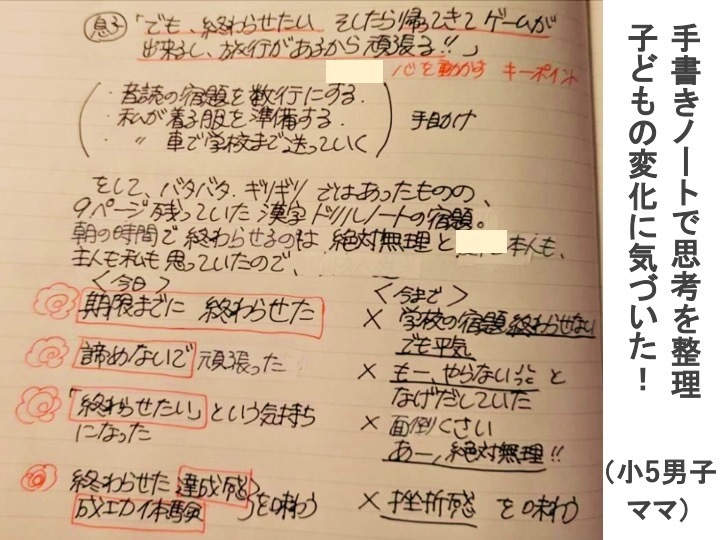 息子「でも、終わらせたい そしたら帰ってきてゲームが
出来るし、旅行があるから頑張る!!」
心を動かす キーポイント
・音読の宿題を数行にする.
・私が着る服を準備する.
・〃 車で学校まで送っていく
手助け
そして、バタバタ.ギリギリ ではあったものの、
9ページ残っていた漢字ドリルノートの宿題。
朝の時間で終わらせるのは 絶対無理と 本人も、
主人も私も思っていたので、
<今日>
期限までに 終わらせた
諦めないで 頑張った
「終わらせたい」という気持ち
になった
終わらせた 達成感
成功体験 を味わう
<今まで>
× 学校の宿題終わらせない
でも平気
× もー、やらない と
なげだしていた
× 面倒くさい
あー、絶対無理!!
× 挫折感 を味わう
手書きノートで思考を整理
子どもの変化に気づいた!
(小5男子
ママ)